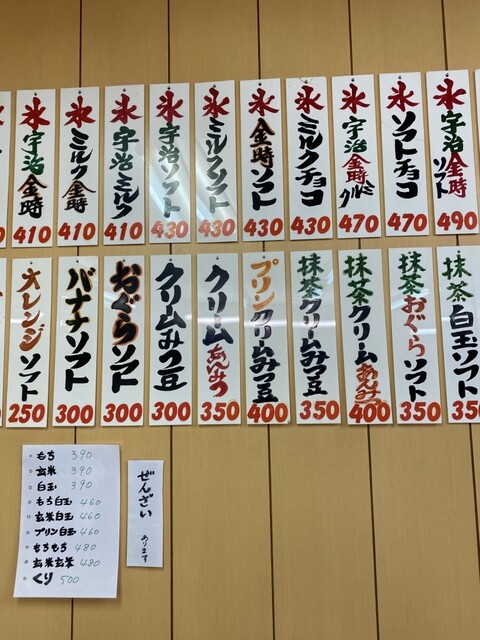 氷宇治金時
410
氷ミルク金時
410
氷宇治ミルク
410
氷宇治ソフト
430
氷ミルクソフト
430
氷金時ソフト
430
氷ミルクチョコ
430
氷宇治金時クルミ
470
氷ソフトチョコ
470
氷宇治金時ソフト
490
オレンジソフト
250
バナナソフト
300
おぐらソフト
300
クリームみつ豆
300
クリームあんみつ
350
プリンクリームみつ豆
400
抹茶クリームみつ豆
350
抹茶クリームあんみつ
400
抹茶おぐらソフト
350
抹茶白玉ソフト
もち 390
玄米 390
白玉 390
もち白玉 460
玄米白玉 460
プリン白玉 460
もちもち 480
玄米玄米 480
くり 500
ぜんざい
あります